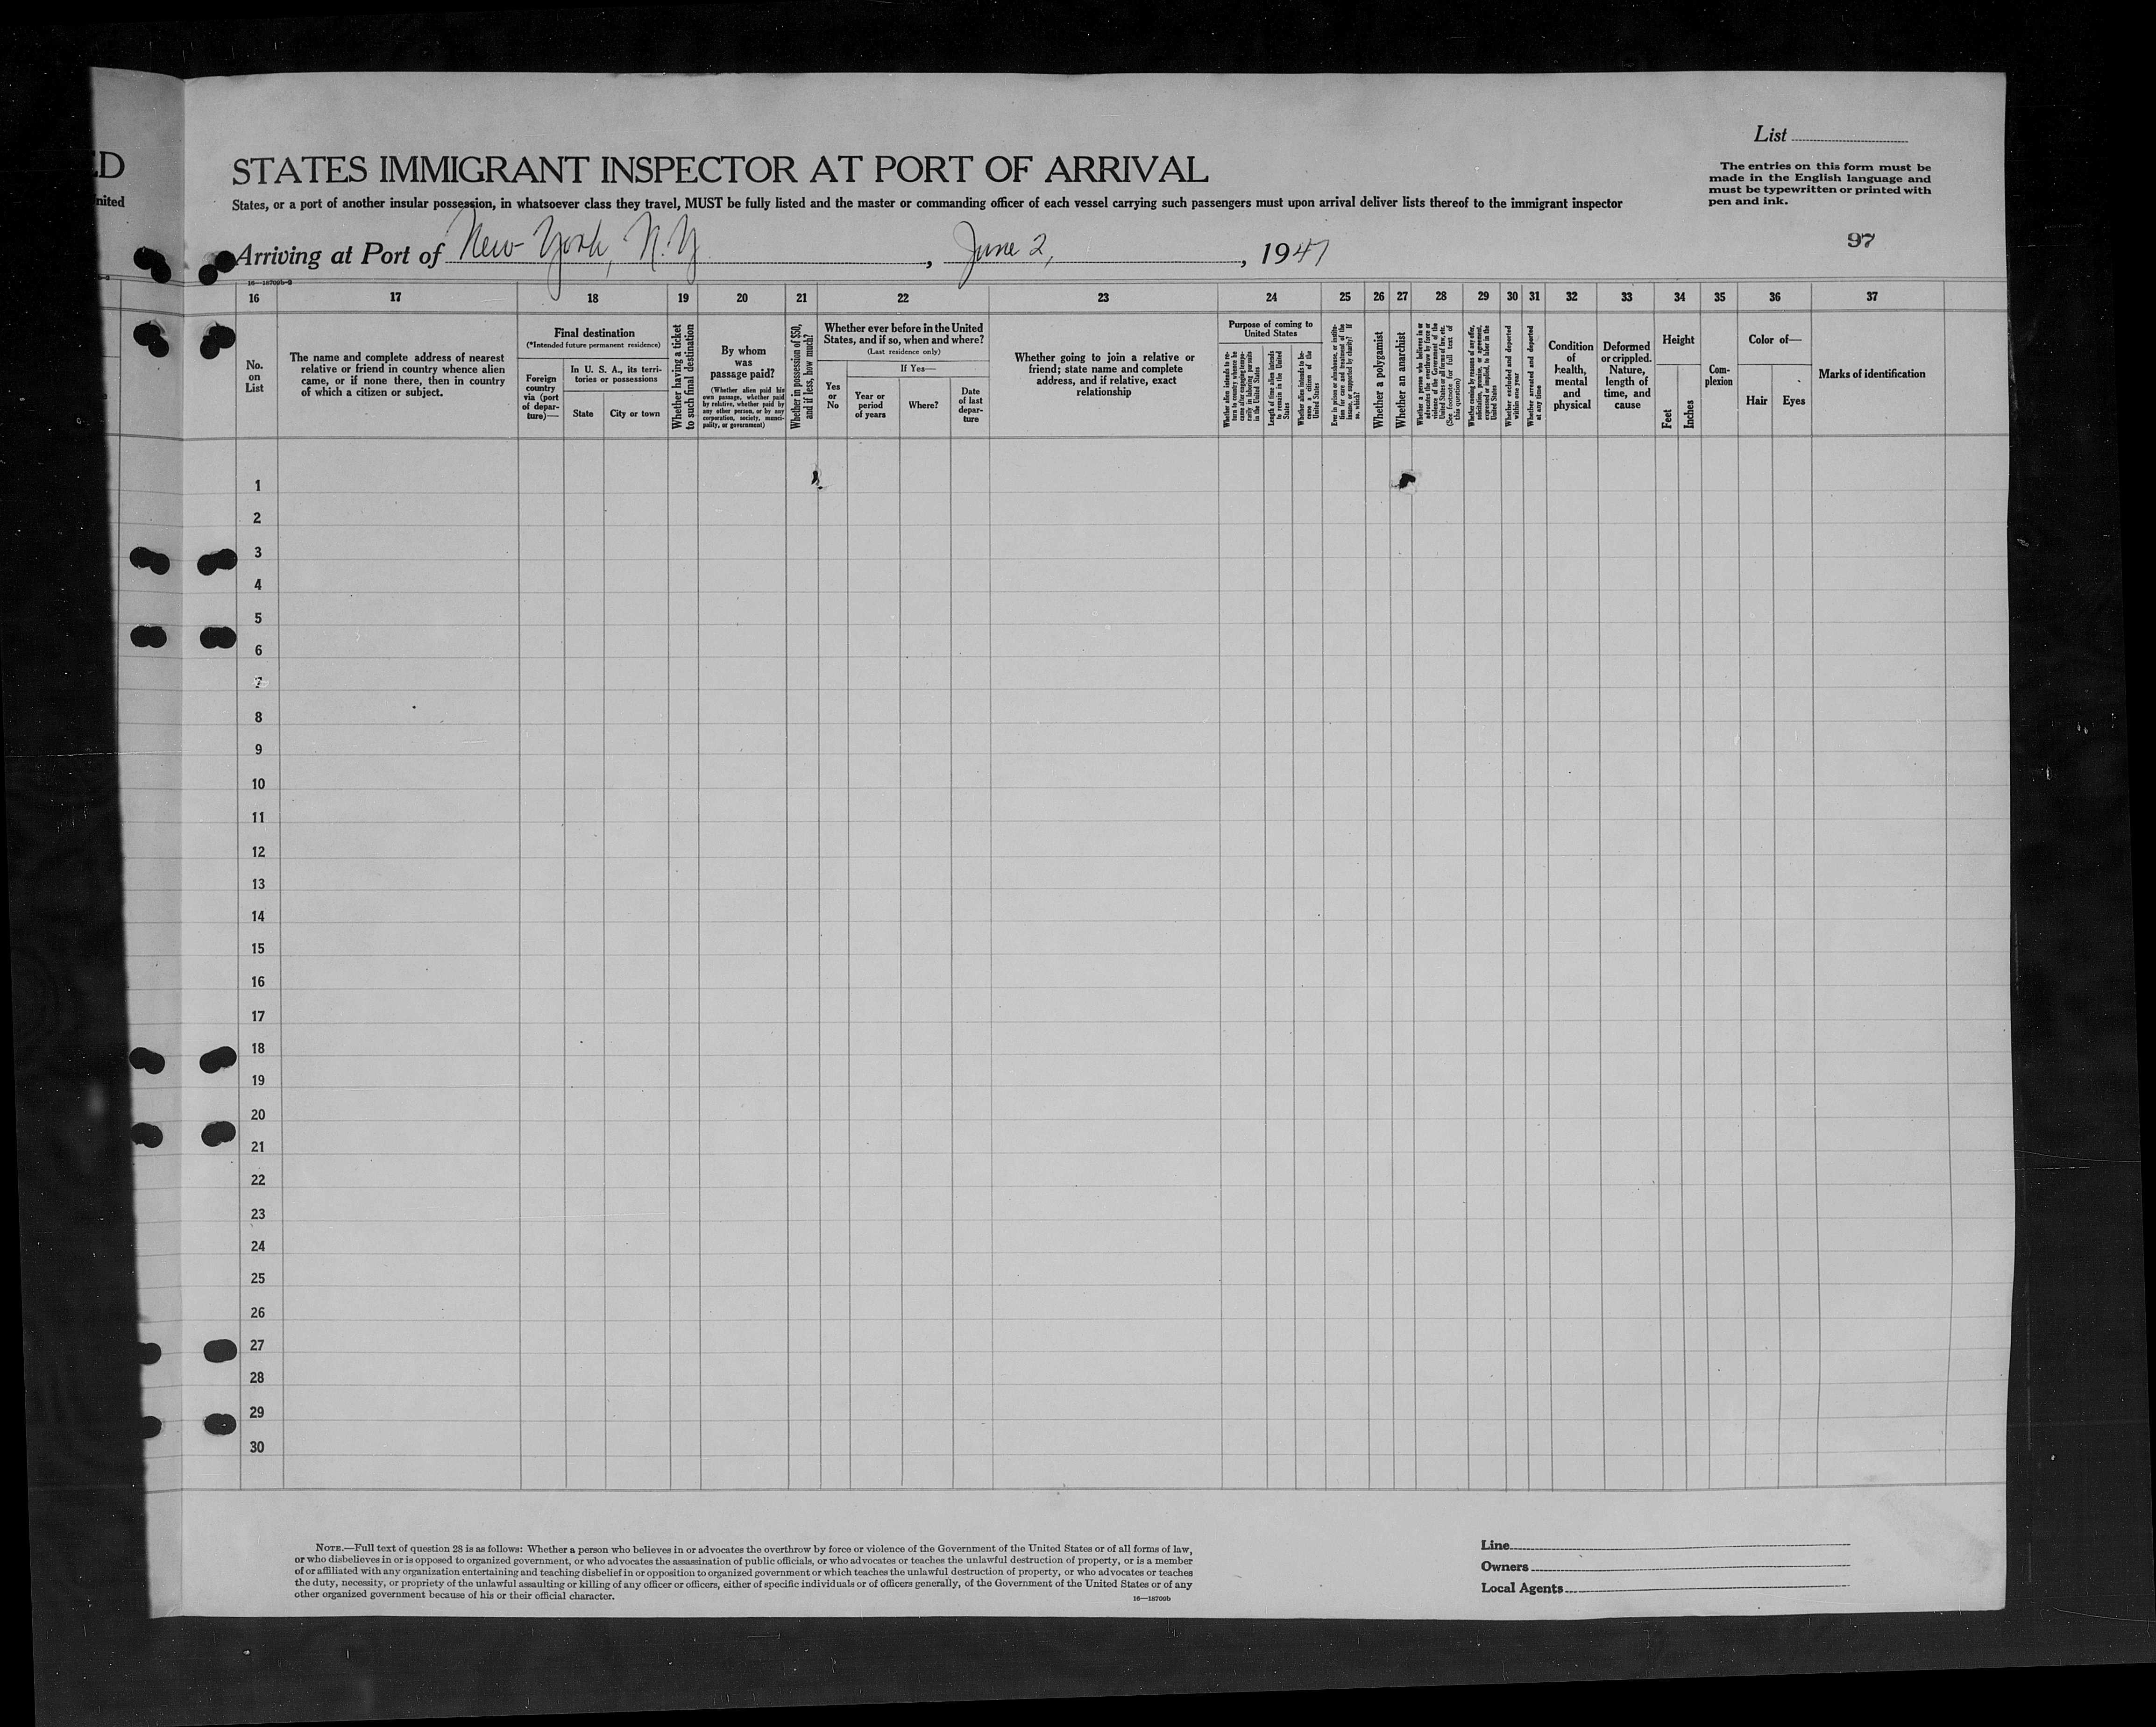 ED
nited
List
STATES IMMIGRANT INSPECTOR AT PORT OF ARRIVAL
The entries on this form must be
made in the English language and
must be typewritten or printed with
pen and ink.
States, or a port of another insular possession, in whatsoever class they travel, MUST be fully listed and the master or commanding officer of each vessel carrying such passengers must upon arrival deliver lists thereof to the immigrant inspector
97
Arriving at Port of New York, N.Y , June 2, , 1947
16—18709b-3
16 17 18 19 20 21 22 23 24 25 26 27 28 29 30 31 32 33 34 35 36 37
No.
on
List
The name and complete address of nearest
relative or friend in country whence alien
came, or if none there, then in country
of which a citizen or subject.
Final destination
(*Intended future permanent residence)
Foreign
country
via (port
of depar-
ture)—
In U. S. A., its terri-
tories or possessions
State
City or town
Whether having a ticket
to such final destination
By whom
was
passage paid?
(Whether alien paid his
own passage, whether paid
by relative, whether paid by
any other person, or by any
corporation, society, munici-
pality, or government)
Whether in possession of $50,
and if less, how much?
Whether ever before in the United
States, and if so, when and where?
(Last residence only)
Yes
or
No
If Yes—
Year or
period
of years
Where?
Date
of last
depar-
ture
Whether going to join a relative or
friend; state name and complete
address, and if relative, exact
relationship
Purpose of coming to
United States
Whether alien intends to re-
turn to country whence he
came after engaging tempo-
rarily in laboring pursuits
in the United States
Length of time alien intends
to remain in the United
States
Whether alien intends to be-
come a citizen of the
United States
Ever in prison or almshouse, or institu-
tion for care and treatment of the
insane, or supported by charity? If
so, which?
Whether a polygamist
Whether an anarchist
Whether a person who believes in or
advocates the overthrow by force or
violence of the Government of the
United States or all forms of law, etc.
(See footnote for full text of
this question)
Whether coming by reason of any offer,
solicitation, promise, or agreement,
expressed or implied, to labor in the
United States
Whether excluded and deported
within one year
Whether arrested and deported
at any time
Condition
of
health,
mental
and
physical
Deformed
or crippled.
Nature,
length of
time, and
cause
Height
Feet
Inches
Com-
plexion
Color of—
Hair
Eyes
Marks of identification
1
2
3
4
5
6
7
8
9
10
11
12
13
14
15
16
17
18
19
20
21
22
23
24
25
26
27
28
29
30
NOTE.—Full text of question 28 is as follows: Whether a person who believes in or advocates the overthrow by force or violence of the Government of the United States or of all forms of law,
or who disbelieves in or is opposed to organized government, or who advocates the assassination of public officials, or who advocates or teaches the unlawful destruction of property, or is a member
of or affiliated with any organization entertaining and teaching disbelief in or opposition to organized government or which teaches the unlawful destruction of property, or who advocates or teaches
the duty, necessity, or propriety of the unlawful assaulting or killing of any officer or officers, either of specific individuals or of officers generally, of the Government of the United States or of any
other organized government because of his or their official character.
16—18709b
Line
Owners
Local Agents